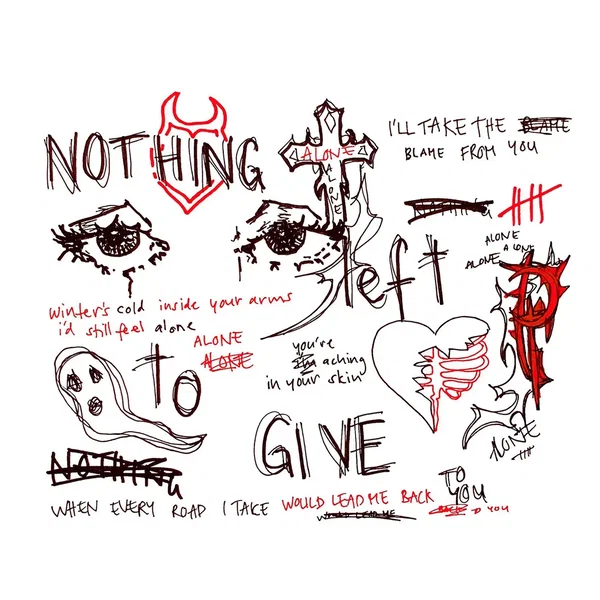 NOTHING
ALONE
ALONE
I'LL TAKE THE BLAME
BLAME FROM YOU
ALONE
ALONE
ALONE
left
winter's cold inside your arms
i'd still feel alone
ALONE
ALONE
you're
I'm aching
in your skin
TO
GIVE
ALONE
NOTHING
WHEN EVERY ROAD I TAKE WOULD LEAD ME BACK TO YOU
WOULD LEAD ME
BACK TO YOU